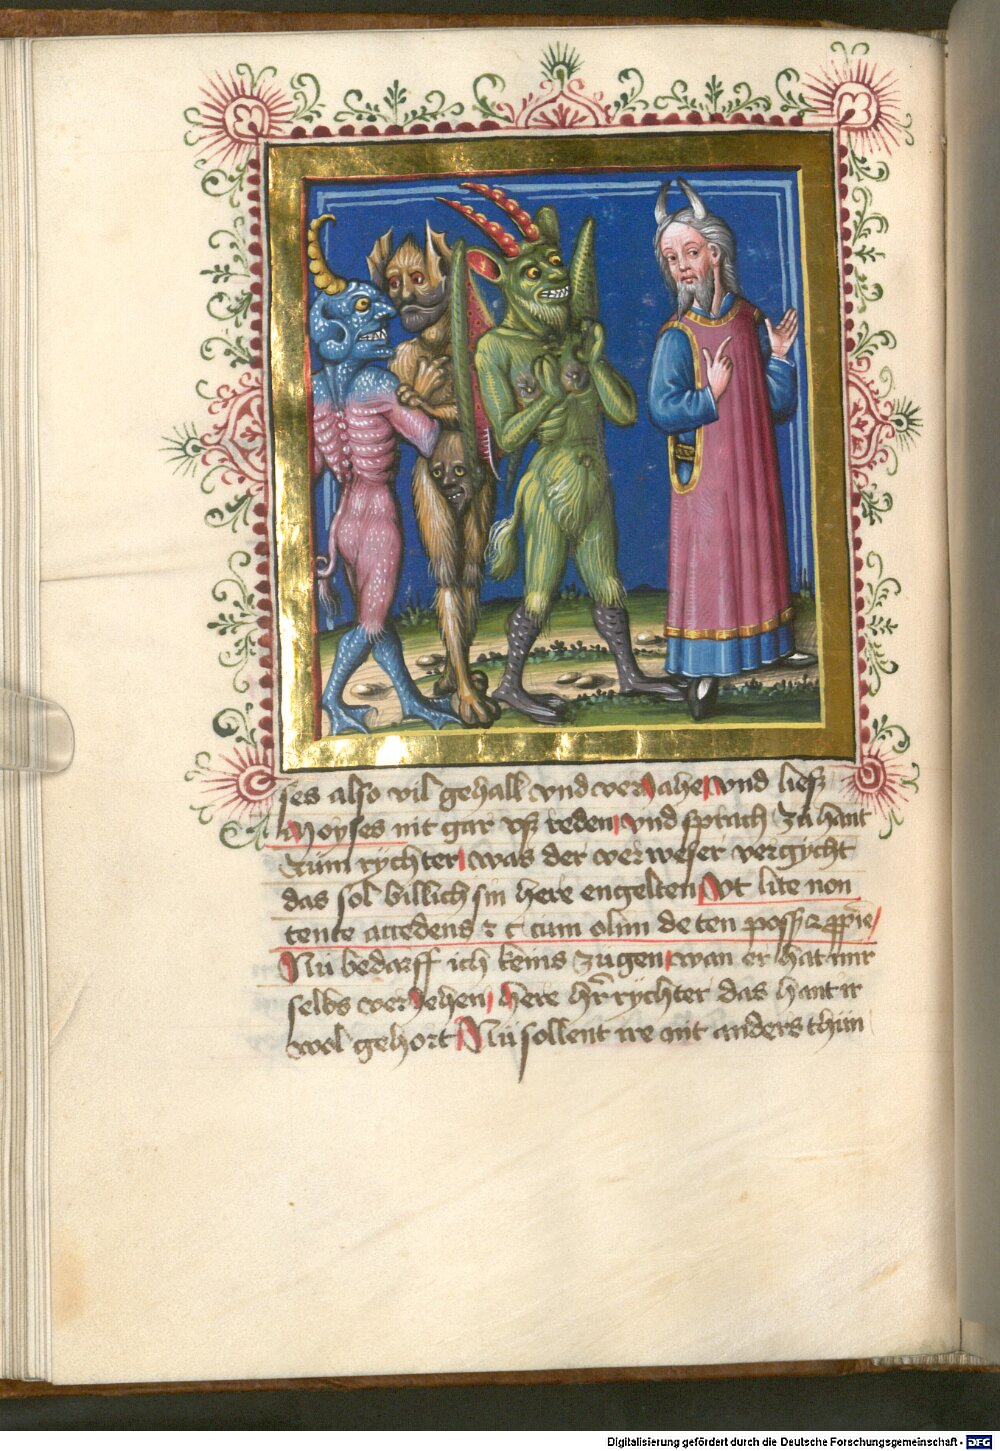 ses also vil gehall vnd veriahe vnd liesz
Moyses nit gar vsz reden vnd sprach zu hant
zum rychter was der verweser vergycht
das sol billich sin here engelten Vt lite non
tente accedens z c cum olim de ten
Nu bedarff ich keins zugen wan er hat mir
selbs veriehen here hr̄ rychter das hant ir
wol gehort Nu sollent ire nit anders thun
Digitalisierung gefördert durch die Deutsche Forschungsgemeinschaft - DFG